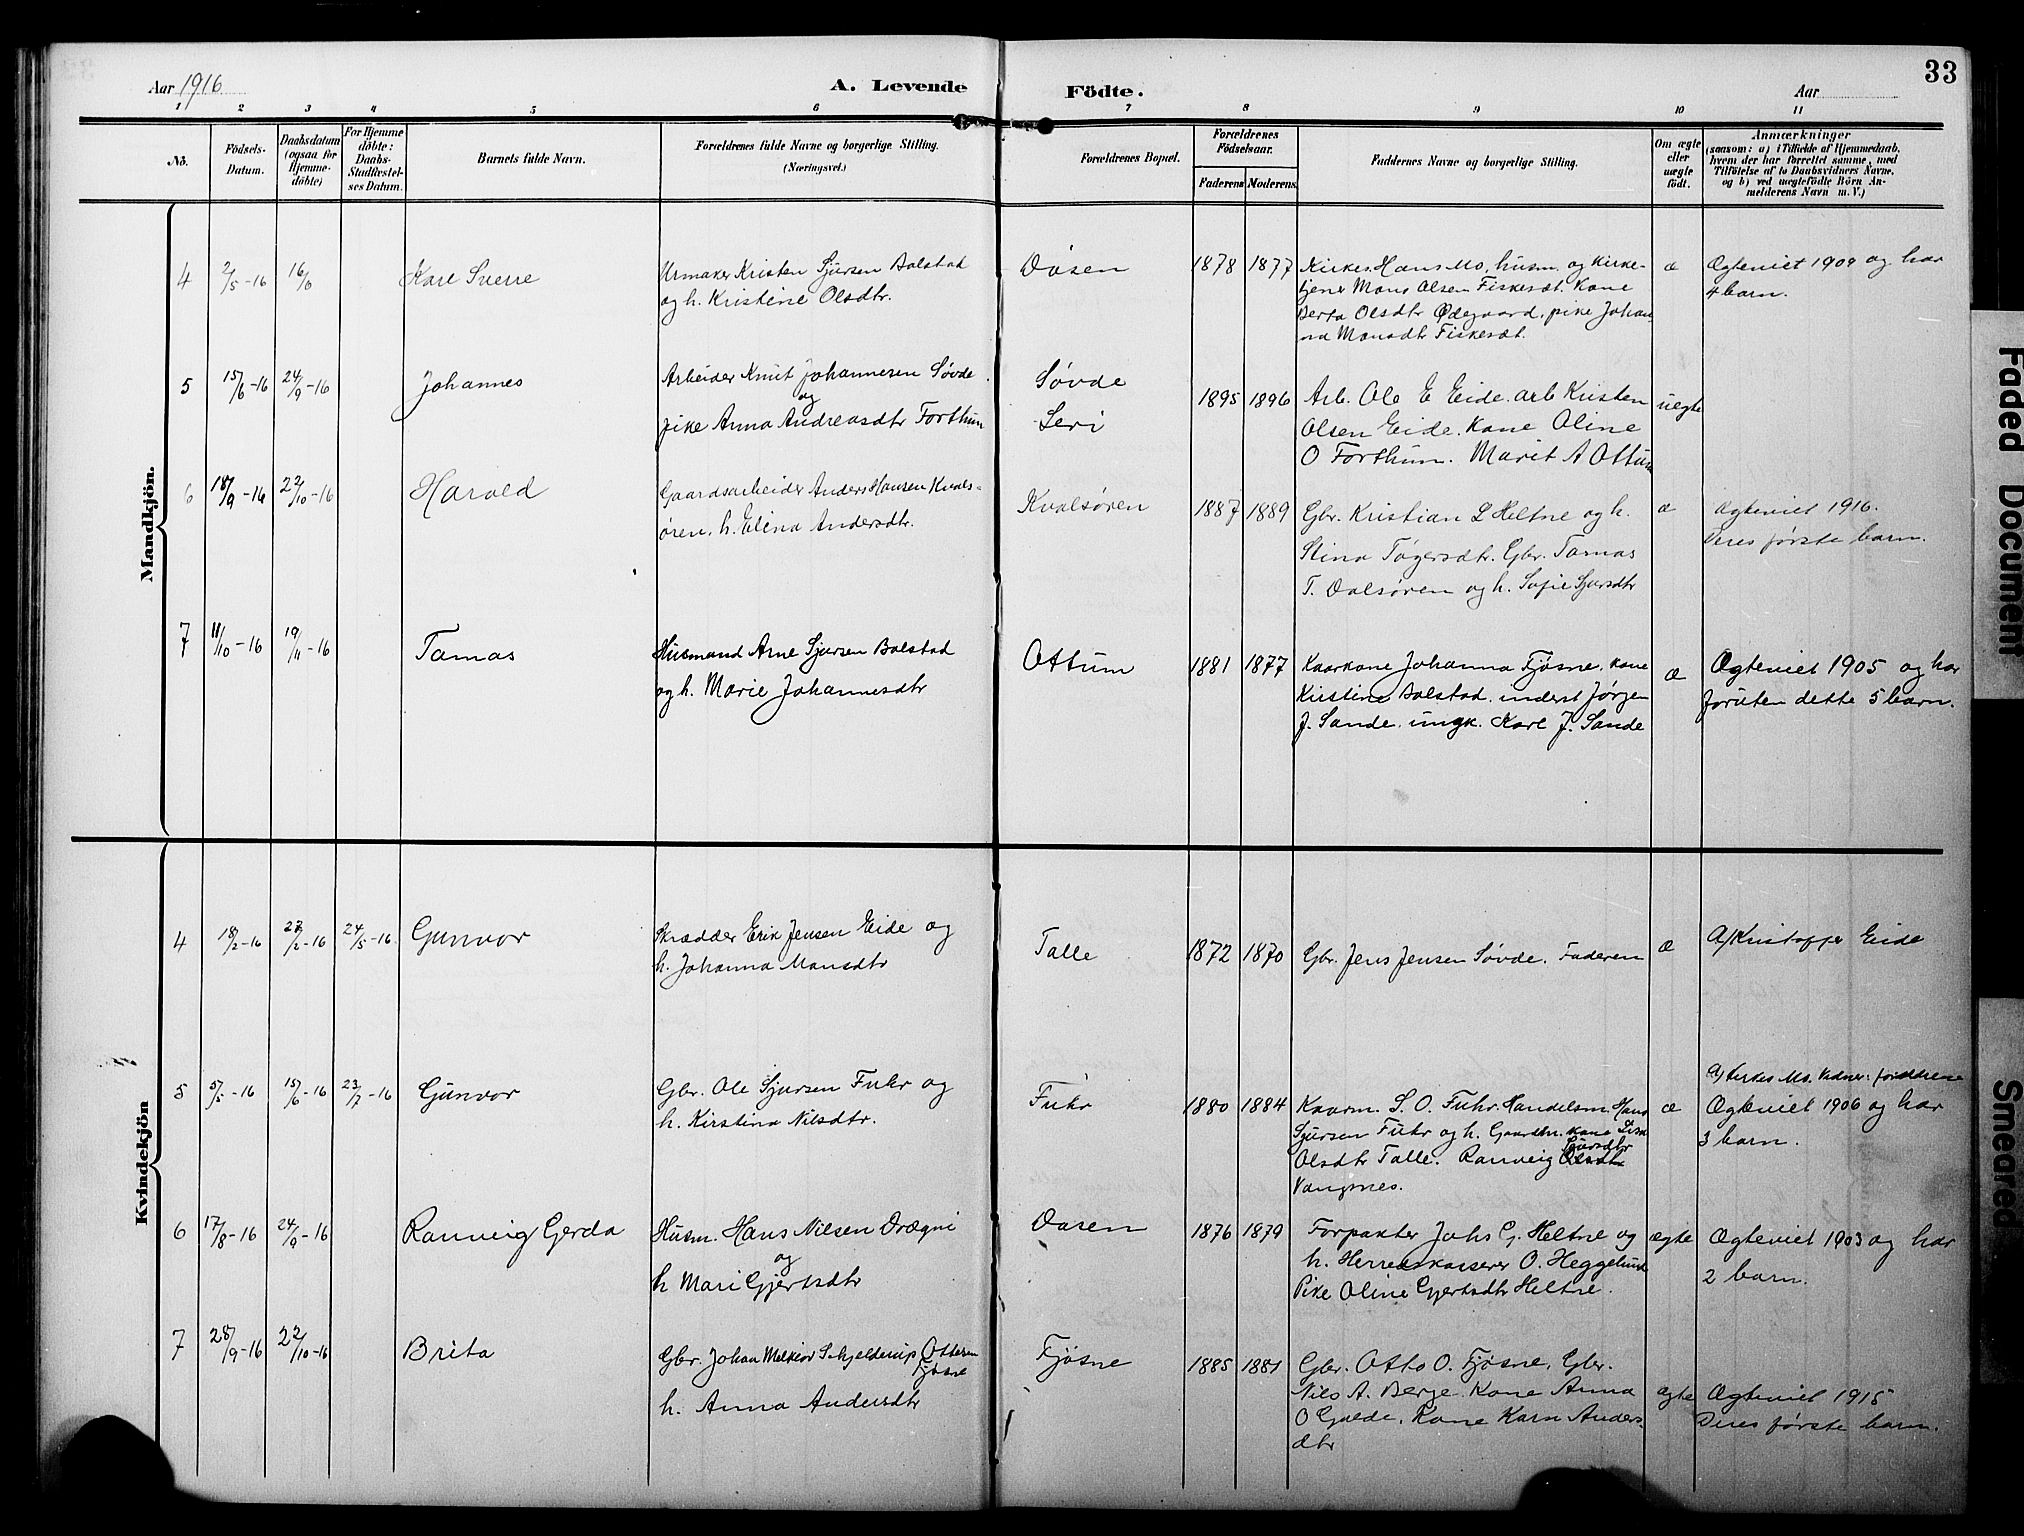 33
Aar 1916
A. Levende Födte.
Aar
1 2 3 4 5 6 7 8 9 10 11
No.
Födsels-Datum.
Daabsdatum (ogsaa for Hjemme-döbte)
For Hjemme döbte: Daabs-Stadfæstel-ses Datum.
Barnets fulde Navn.
Forældrenes fulde Navne og borgerlige Stilling.
(Næringsvei.)
Forældrenes Bopæl.
Forældrenes Födselsaar.
Faderens Moderens
Faddernes Navne og borgerlige Stilling.
Om ægte eller uægte födt.
Anmærkninger
(saasom: a) i Tilfælde af Hjemmedaab,
hvem der har forrettet samme, med
Tilföielse af to Daabsvidners Navne,
og b) ved uægtefödte Börn An-
melderens Navn m. V.)
Mandkjön.
4 2/5-16 16/6 Karl Sverre
Urmaker Kristen Sjursen Bolstad
og h. Kristine Olsdtr.
Døsen
1878 1877
Kirkes. Hans Mo, husm. og kirke-
tjener Mons Olsen Fiskesæt. Kone
Berta Olsdtr Ødegaard, pike Johan
na Monsdtr Fiskesæt.
æ
Ægteviet 1909 og har
4 barn.
5 15/6-16 24/9-16 Johannes
Arbeider Knut Johannesen Søvde
og
pike Anna Andreasdtr Forthun
Søvde
Leri
1895 1896
Arb. Ole E Eide. arb Kristen
Olsen Eide. Kone Oline
O Forthun. Marit A Ottum
uegte
6 18/9-16 22/10-16 Harald
Gaardsarbeider Anders Hansen Kvals-
øren. h. Elina Andersdtr.
Kvalsøren
1887 1889
Gbr. Kristian L Heltne og h.
Stina Tøgersdtr. Gbr. Tomas
T. Dalsøren og h. Sofie Sjursdtr
æ
Ægteviet 1916.
Deres første barn.
7 11/10-16 19/11-16 Tomas
Husmand Arne Sjursen Bolstad
og h. Marie Johannesdtr
Ottum
1881 1877
Kaarkone Johanna Fjøsne, kone
Kristine Bolstad. inderst Jørgen
J. Sande. ungk. Karl J. Sande
æ
Ægteviet 1905 og har
foruten dette 5 barn.
Kvindekjön
4 18/2-16 27/2-16 24/5-16 Gunvor
Skrædder Erik Jensen Eide og
h. Johanna Monsdtr
Talle
1872 1870
Gbr. Jens Jensen Søvde. Faderen
æ
A/ Kristoffer Eide
5 5/5-16 15/6-16 23/7-16 Gunvor
Gbr. Ole Sjursen Fuhr og
h. Kirstina Nilsdtr.
Fuhr
1880 1884
Kaarm. S. O. Fuhr. Handelsm. Hans
Sjursen Fuhr og h. Gaardbr. kone
Olsdtr Talle. Ranveig Sjursdtr
Vangsnes.
æ
Mo. Vidner: forældrene
Ægteviet 1906 og har
3 barn.
6 17/8-16 24/9-16 Ranveig Gerda
Husm. Hans Nilsen Drægni
og
h Mari Gjertsdtr
Døsen
1876 1879
Forpakter Johs G. Heltne og
h. Herredskasserer O. Heggelund
Pike Oline Gjertsdtr Heltne.
ægte
Ægteviet 1903 og har
2 barn.
7 28/9-16 22/10-16 Brita
Gbr. Johan Melkior Schjelderup Ottesen
Fjøsne
h. Anna Andersdtr
Fjøsne
1885 1881
Gbr. Otto O. Fjøsne. Gbr.
Nils A. Berge. Kone Anna
O Gjelde. Kone Karn Anders-
dtr
ægte
Ægteviet 1915
Deres første barn.
Faded Document
Smeared